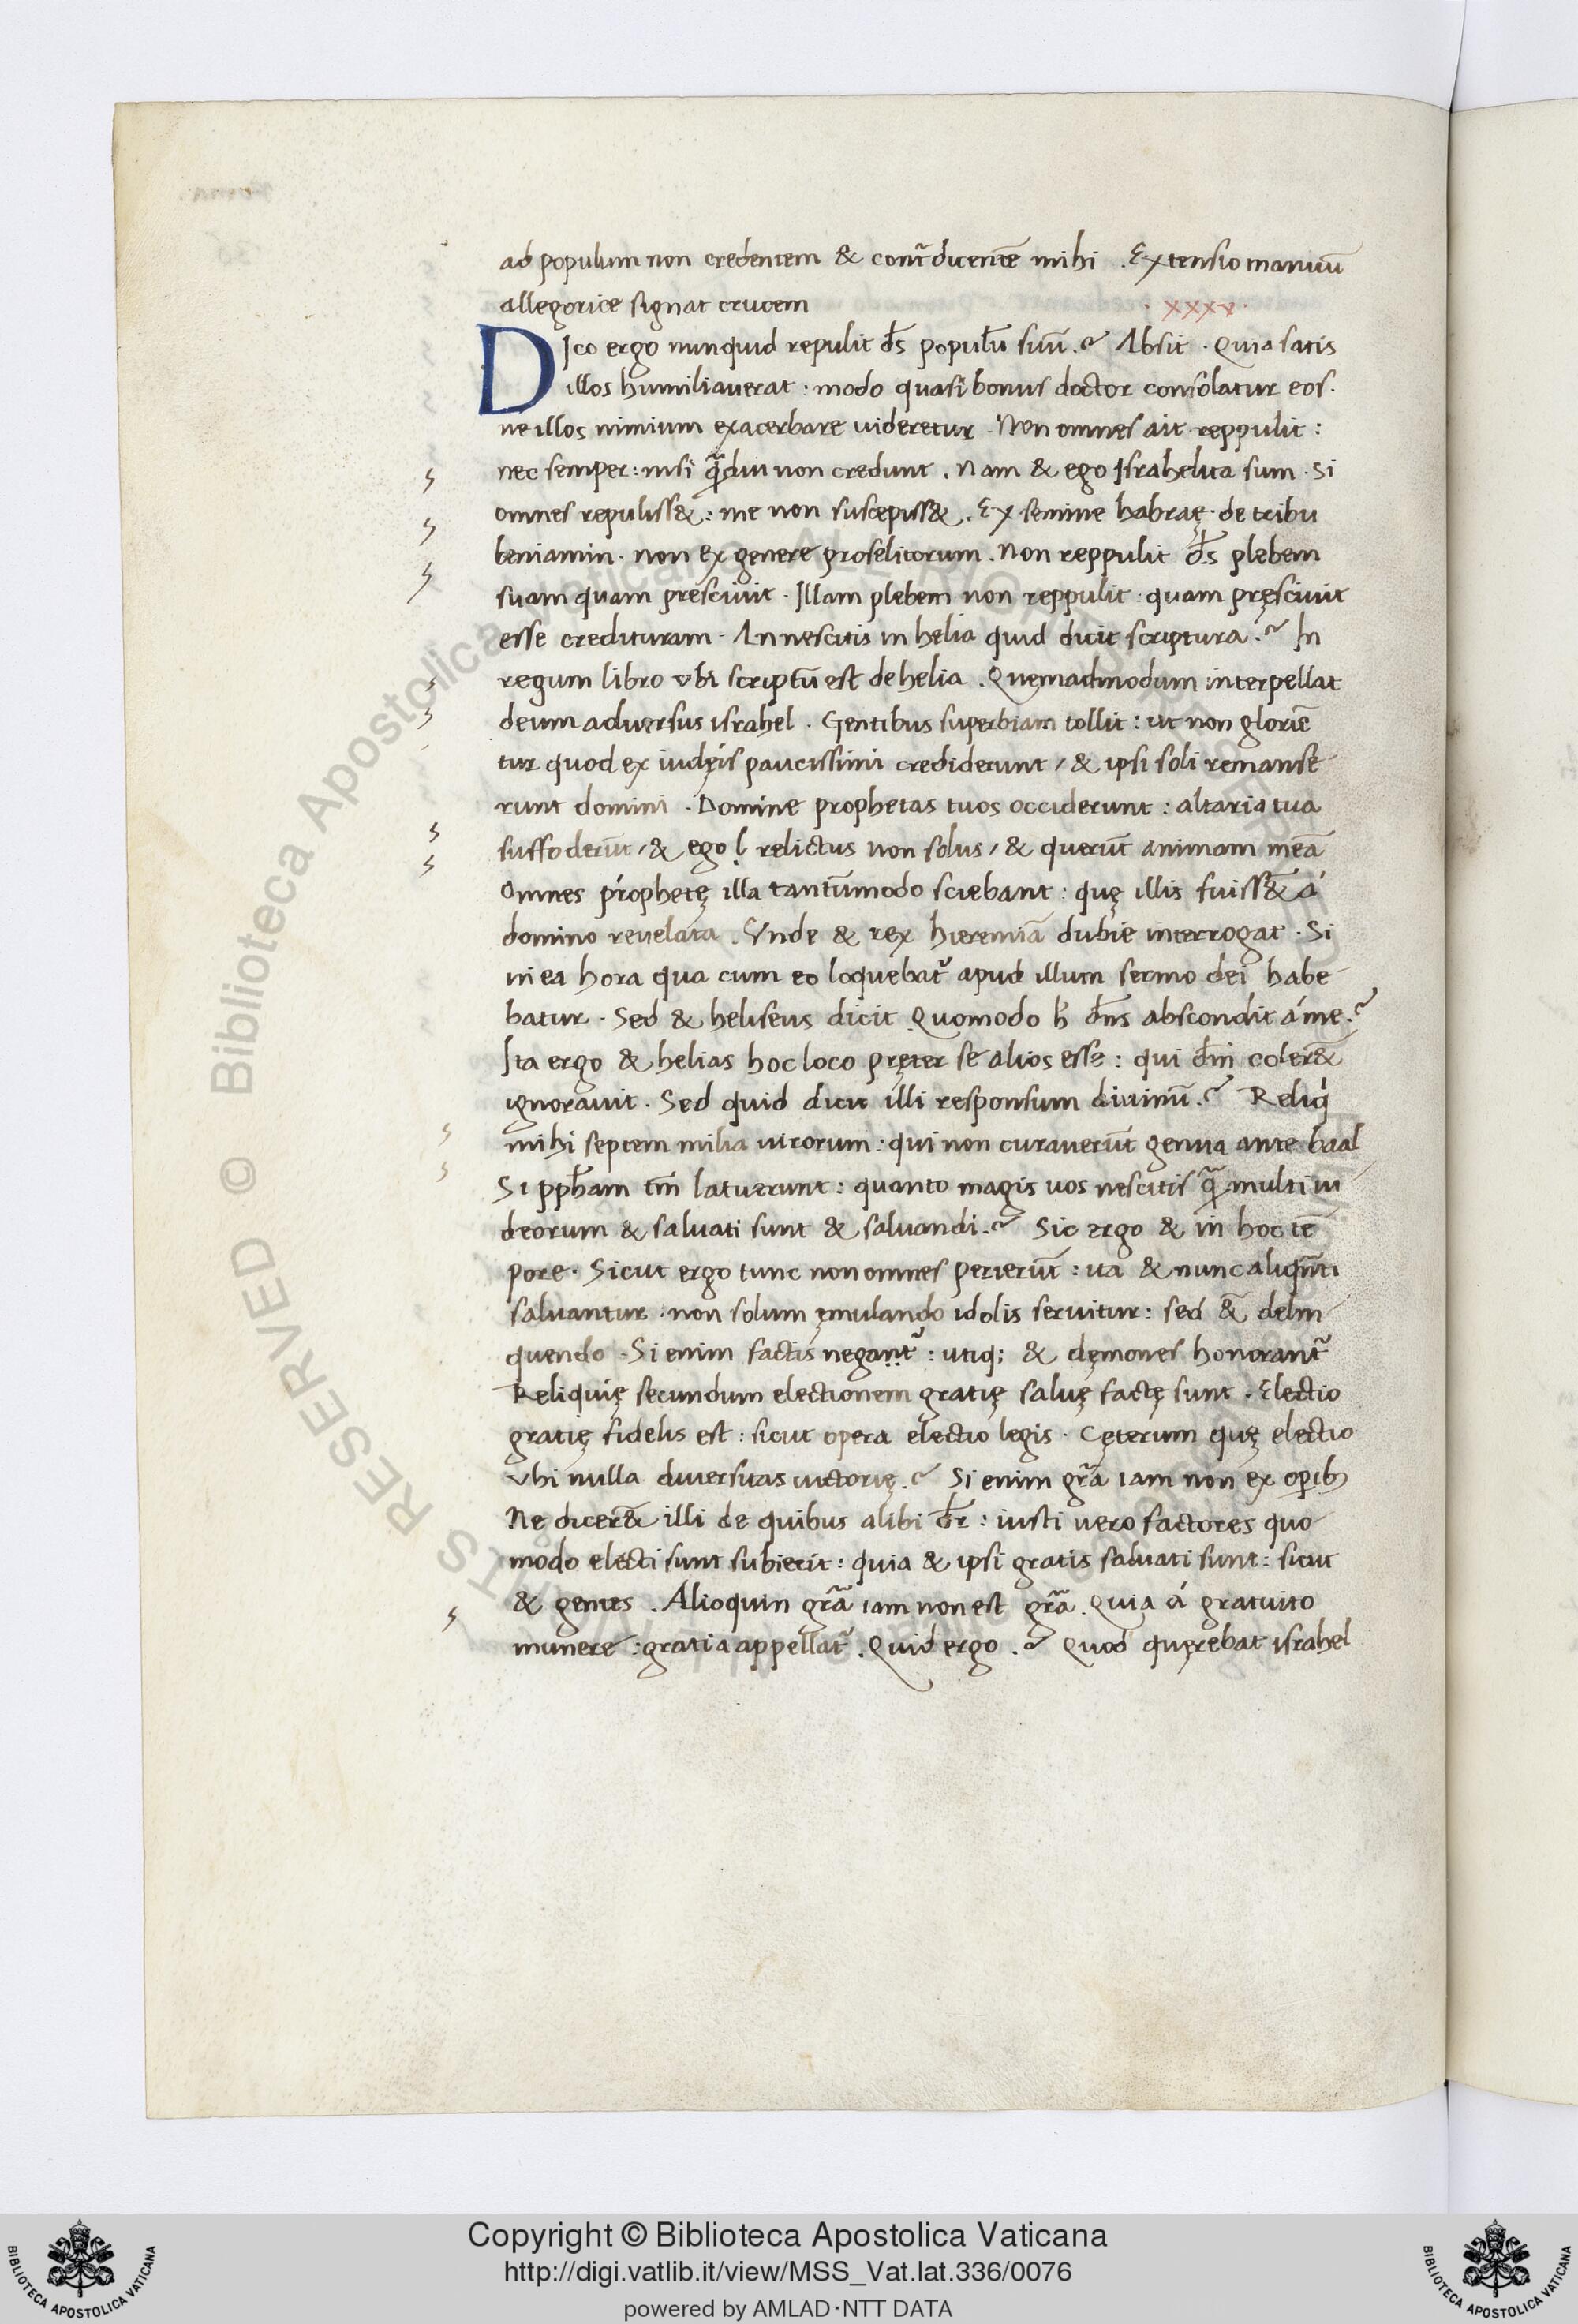 ad populum non credentem & contᷓdicentē mihi . Extensio manuū
allegorice signat crucem
· xxxv ·
DIco ergo nunquid repulit d̄s populū suū.? Absit . Quia satis
illos humiliauerat : modo quasi bonus doctor consolatur eos.
ne illos nimium exacerbare uideretur . Non omnes ait reppulit :
nec semper : nisi q̄̃diu non credunt . Nam & ego Israhelita sum . Si
omnes repuliss& : me non suscepiss& . Ex semine habraę . de tribu
beniamin . non ex genere proselitorum . Non reppulit d̄s plebem
suam quam presciuit . Illam plebem non reppulit : quam pręsciuit
esse credituram . An nescitis in helia quid dicit scriptura .? In
regum libro vbi scriptū est de helia . Quęmadmodum interpellat
deum aduersus israhel . Gentibus superbiam tollit : ut non gloriē
tur quod ex iudęis paucissimi crediderunt / & ipsi soli remanse-
runt domini . Domine prophetas tuos occiderunt : altaria tua
suffoderūt / & ego relictus non solus / & querūt animam meā
Omnes prophetę illa tantūmodo sciebant : quę illis fuiss&̄ á
domino reuelata . Vnde & rex hieremiā dubie interrogat . Si
in ea hora qua cum eo loquebat᷑ apud illum sermo dei habe-
batur . Sed & heliseus dicit Quomodo h̄ dn̄s abscondit á me .?
Ita ergo & helias hoc loco pręter se alios esse : qui dn̄m coler&̄
ignorauit . Sed quid dicit illi responsum diuinū .? Reliq̇
mihi septem milia uirorum : qui non curauerūt genua ante baal
Si pph̄am tm̄ latuerunt : quanto magis uos nescitis q̄̃ multi iu-
deorum & saluati sunt & saluandi .? Sic ergo & in hoc tē
pore . Sicut ergo tunc non omnes perierūt : ita & nunc aliqn̄ti
saluantur . non solum ęmulando idolis seruitur : sed &̄ delin-
quendo . Si enim factis negant᷑ : utiq; & dęmones honorant᷑
Reliquię secundum electionem gratię saluę factę sunt . Electio
gratię fidelis est : sicut opera electio legis . Cęterum quę electio
vbi nulla diuersitas uictorię .? Si enim gr̄a iam non ex opib
Ne dicer&̄ illi de quibus alibi dr̄ : iusti uero factores quo-
modo electi sunt subiecit : quia & ipsi gratis saluati sunt : sicut
& gentes . Alioquin gr̄a iam non est gr̄a . Quia á gratuito
munere : gratia appellat᷑ . Quid ergo .? Quod quęrebat israhel
RESERVED © Biblioteca Apostolica Vaticana
Copyright © Biblioteca Apostolica Vaticana
http://digi.vatlib.it/view/MSS_Vat.lat.336/0076
powered by AMLAD·NTT DATA
BIBLIOTECA APOSTOLICA VATICANA
BIBLIOTECA APOSTOLICA VATICANA